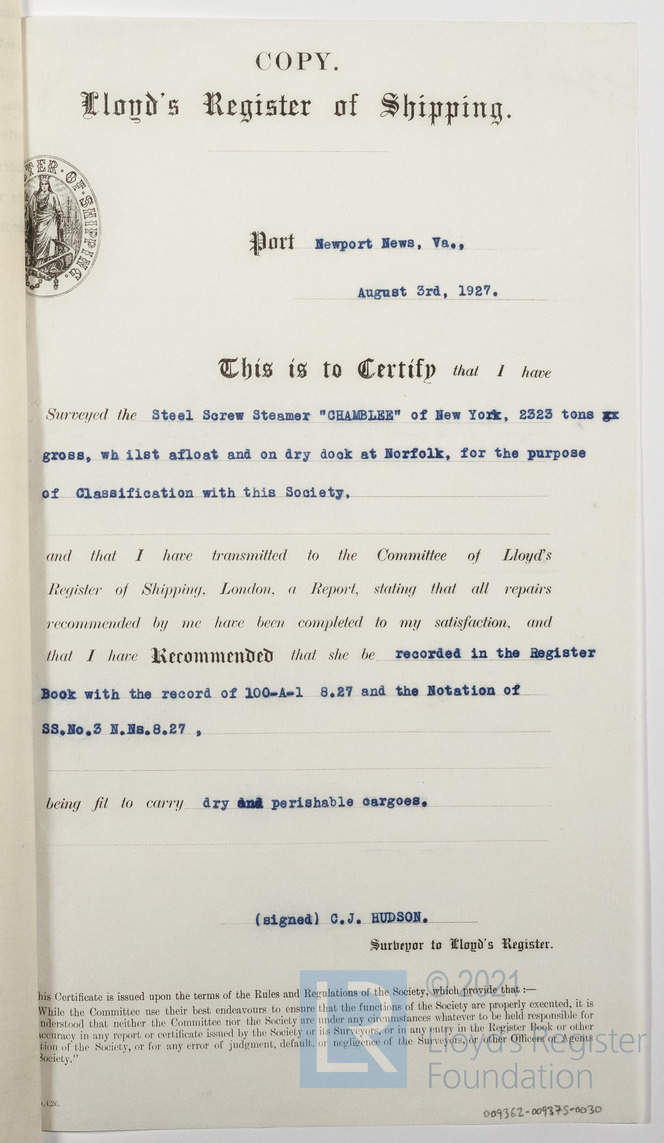 COPY.
Lloyd's Register of Shipping.
TER·OF·SHIPPING.
Port Newport News, Va.,
August 3rd, 1927.
This is to Certify that I have
Surveyed the Steel Screw Steamer "CHAMBLEE" of New York, 2323 tons gx
gross, wh ilst afloat and on dry dock at Norfolk, for the purpose
of Classification with this Society,
and that I have transmitted to the Committee of Lloyd's
Register of Shipping, London, a Report, stating that all repairs
recommended by me have been completed to my satisfaction, and
that I have Recommended that she be recorded in the Register
Book with the record of 100-A-1 8.27 and the Notation of
SS.No.3 N.Ns.8.27 ,
being fit to carry dry and perishable cargoes.
(signed) C.J. HUDSON.
Surveyor to Lloyd's Register.
his Certificate is issued upon the terms of the Rules and Regulations of the Society, which provide that :—
While the Committee use their best endeavours to ensure that the functions of the Society are properly executed, it is
nderstood that neither the Committee nor the Society are under any circumstances whatever to be held responsible for
accuracy in any report or certificate issued by the Society or its Surveyors, or in any entry in the Register Book or other
tion of the Society, or for any error of judgment, default, or negligence of the Surveyors, or other Officers or Agents
Society."
© 2021
LR
Lloyd's Register
Foundation
009362-009375-0030